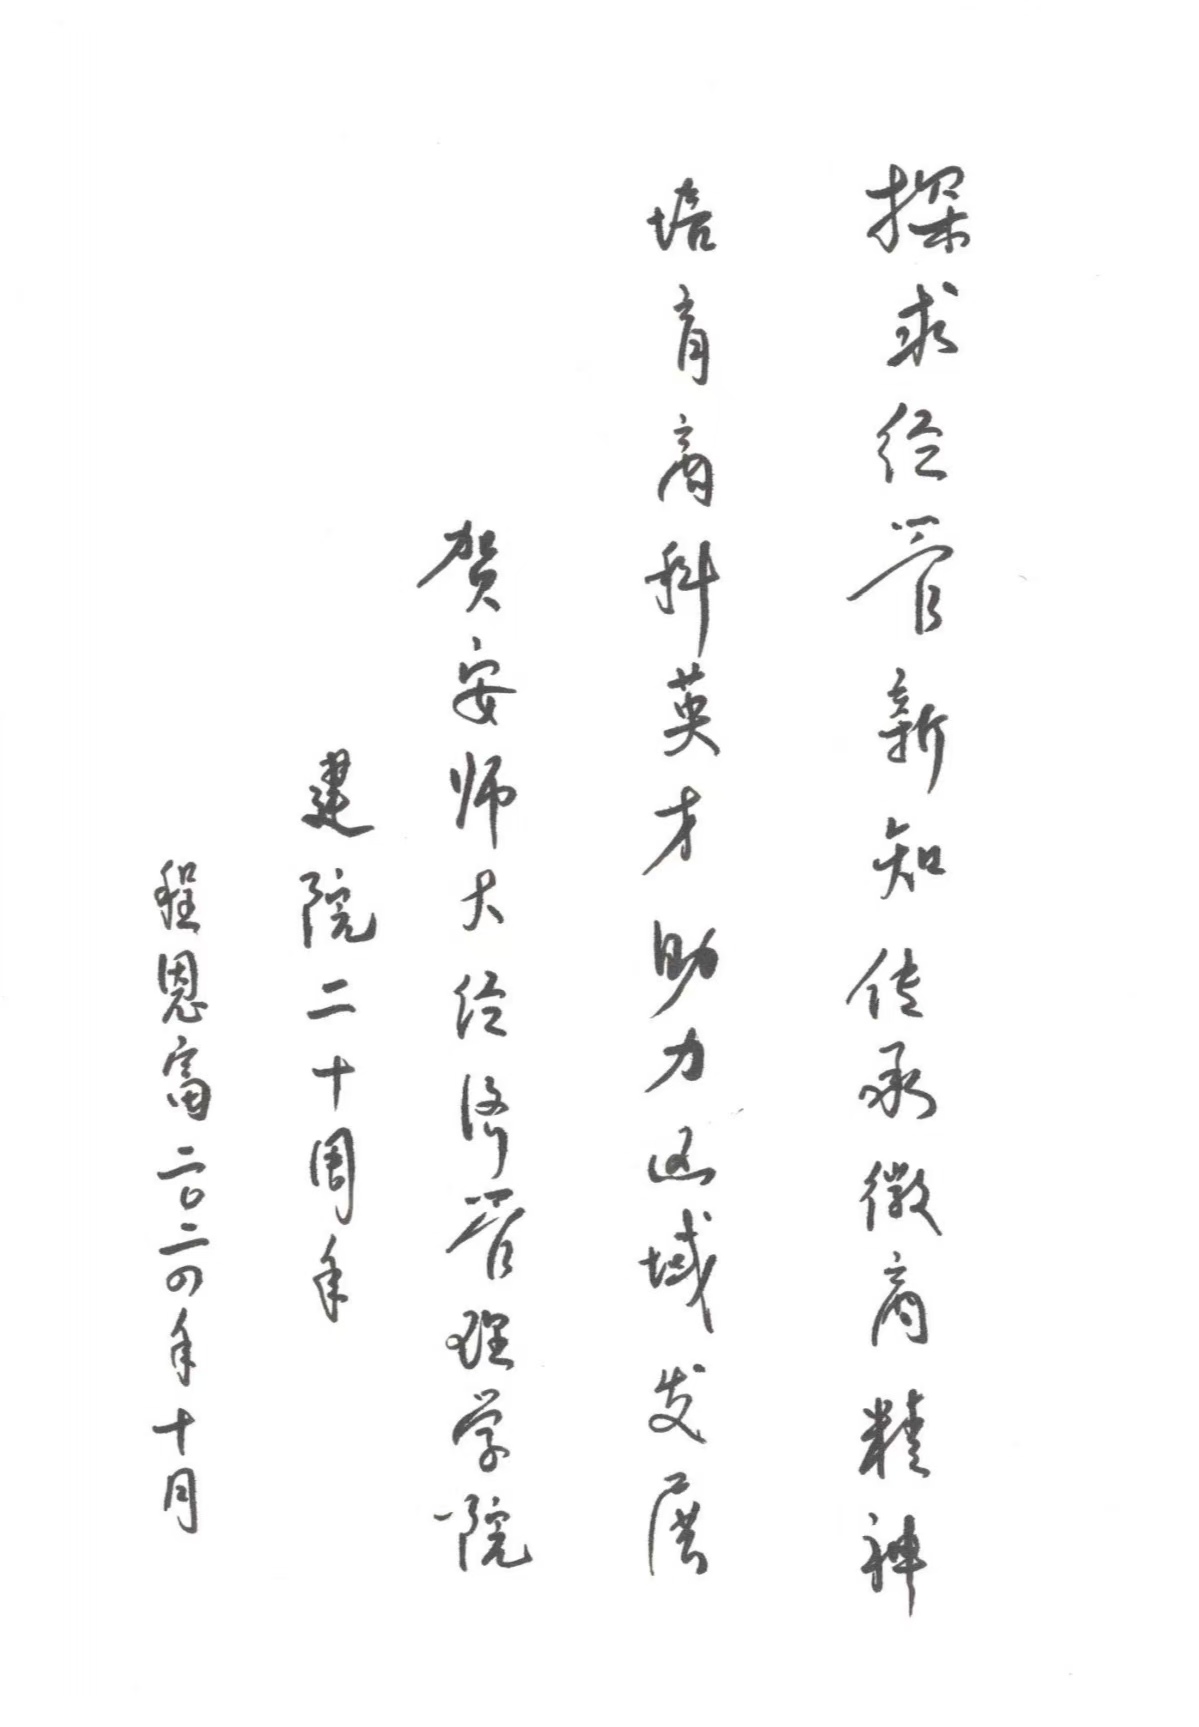 探求经管新知传承徽商精神
培育商科英才助力区域发展
贺安师大经济管理学院
建院二十周年
程恩富二〇二四年十月